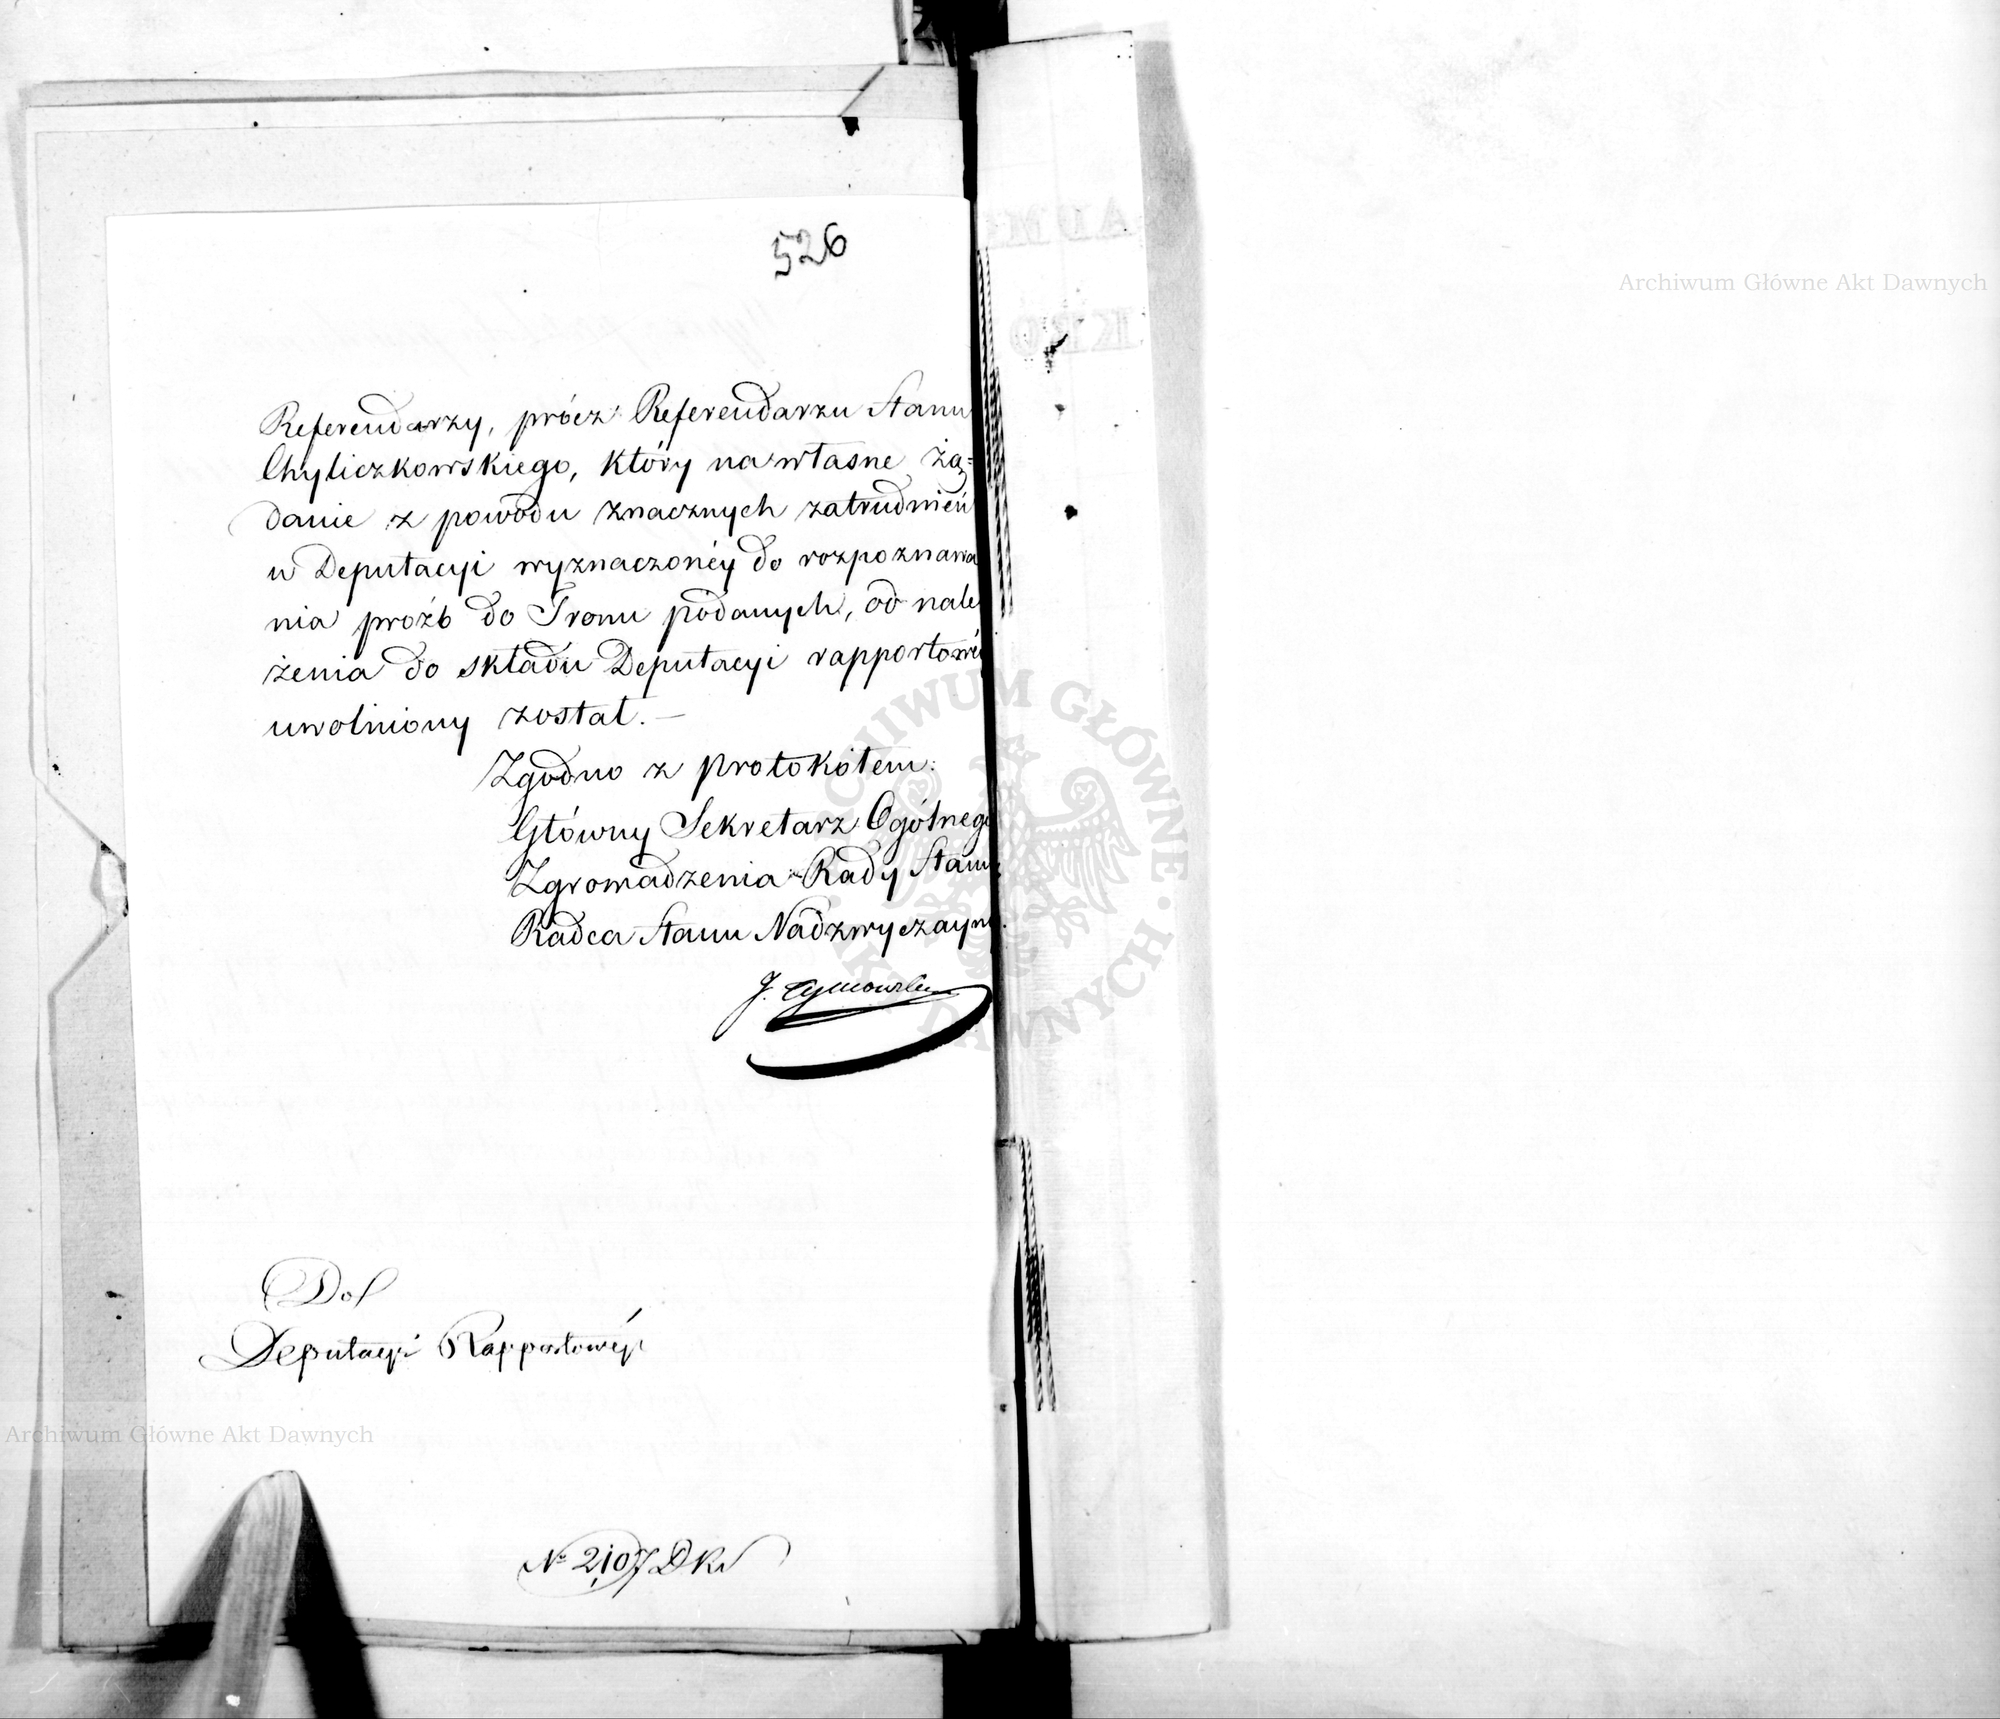 526
Referendarzy, prócz Referendarzu Stanu
Chyliczkowskiego, który na własne żą=
danie z powodu znacznych zatrudnień
w Deputacyi wyznaczonéy do rozpoznawa
nia proźb do Tronu podanych, od nale
żenia do składu Deputacyi rapportowéy
uwolniony został. —
Zgodno z protokółem:
Główny Sekretarz Ogólnego
Zgromadzenia Rady Stanu,
Radca Stanu Nadzwyczayny.
J. Tymowski
Do
Deputacyi Rapportowéy
No 2,107 DKr
Archiwum Główne Akt Dawnych
Archiwum Główne Akt Dawnych
ARCHIWUM GŁÓWNE AKT DAWNYCH